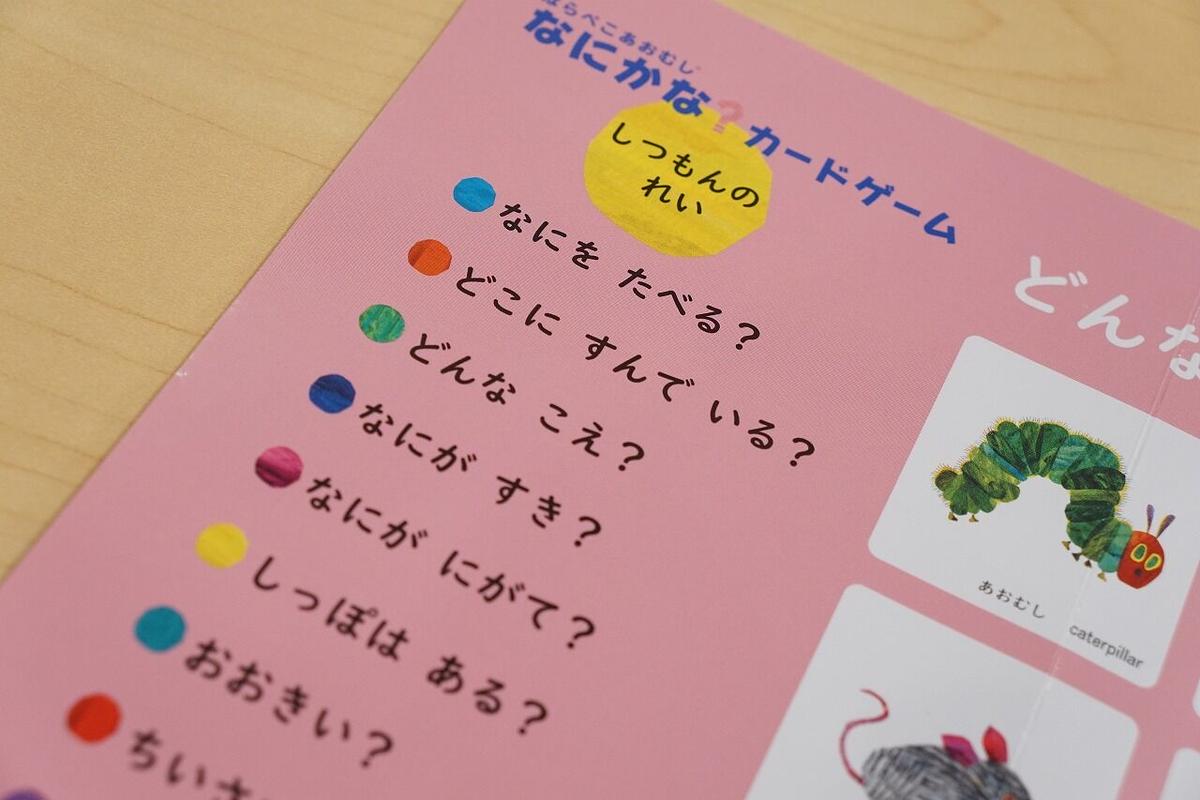 はらぺこあおむし
なにかな？カードゲーム
しつもんの
れい
なにを たべる？
どこに すんで いる？
どんな こえ？
なにが すき？
なにが にがて？
しっぽは ある？
おおきい？
ちいさ
どんな
あおむし
caterpillar